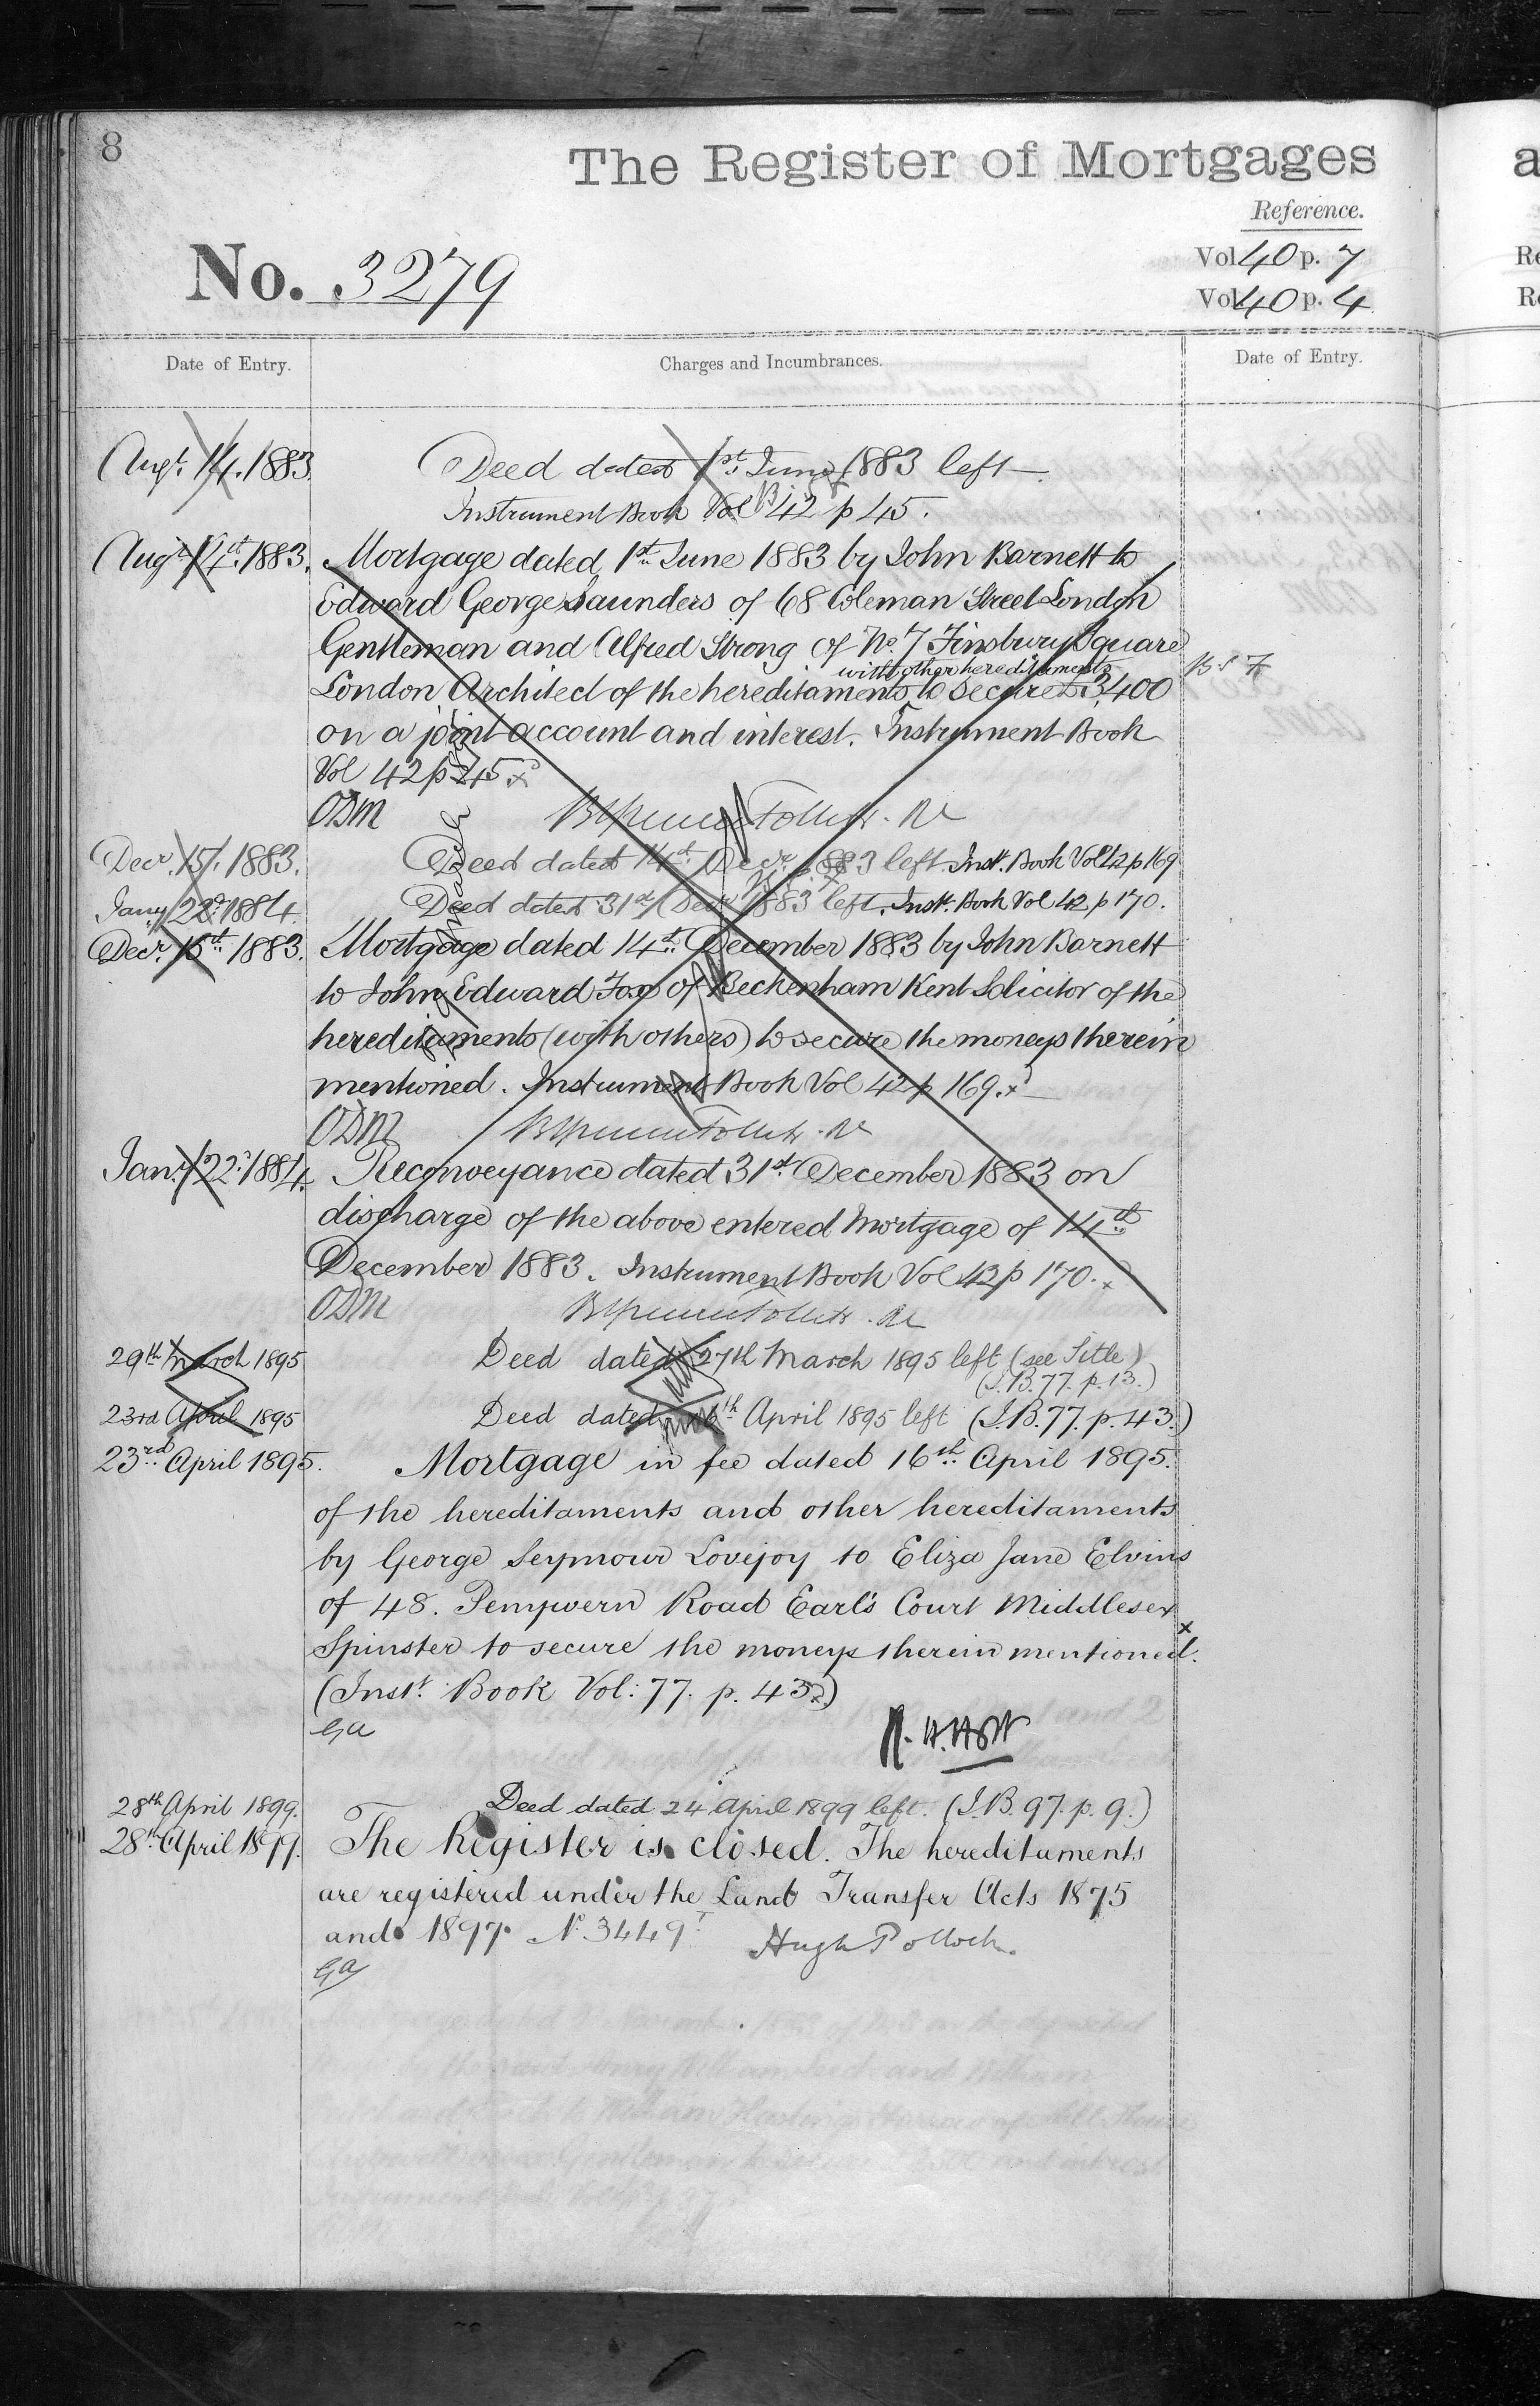 8
The Register of Mortgages
Reference.
No. 3279
Vol 40 p. 7
Vol 40 p. 4
Date of Entry.
Charges and Incumbrances.
Date of Entry.
Augt. 14. 1883.
Deed dated 1st June 1883 left
Instrument Book Vol 42 p 45.
Augt 1883.
Mortgage dated 1st June 1883 by John Barnett to
Edward George Saunders of 68 Coleman Street London
Gentleman and Alfred Strong of No. 7 Finsbury Square
with other hereditaments
London Architect of the hereditaments to secure £3,400
on a joint account and interest. Instrument Book
Vol 42 p 45
ODM
Decr. 15. 1883.
Deed dated 14th Decr. 1883 left Inst. Book Vol 42 p 169
Jany 22d 1884.
Deed dated 31st Decr 1883 left. Inst. Book Vol 42 p 170.
Decr. 15th 1883.
Mortgage dated 14th December 1883 by John Barnett
to John Edward Fox of Beckenham Kent Solicitor of the
hereditaments (with others) to secure the moneys therein
mentioned. Instrument Book Vol 42 p 169.
ODM
Jany 22d 1884.
Reconveyance dated 31st December 1883 on
discharge of the above entered Mortgage of 14th
December 1883. Instrument Book Vol 42 p 170.
ODM
29th March 1895
Deed dated 27th March 1895 left (see Title)
(I.B. 77. p. 13.)
23rd April 1895
Deed dated 16th April 1895 left (I.B. 77. p. 43.)
23rd April 1895.
Mortgage in fee dated 16th April 1895.
of the hereditaments and other hereditaments
by George Seymour Lovejoy to Eliza Jane Elvins
of 48. Penywern Road Earl's Court Middlesex
Spinster to secure the moneys therein mentioned.
(Inst. Book Vol: 77. p. 43.)
GA
28th April 1899.
Deed dated 24 April 1899 left. (I.B. 97. p. 9.)
28th April 1899.
The Register is closed. The hereditaments
are registered under the Land Transfer Acts 1875
and 1897. No. 3449
Hugh Pollock.
GA